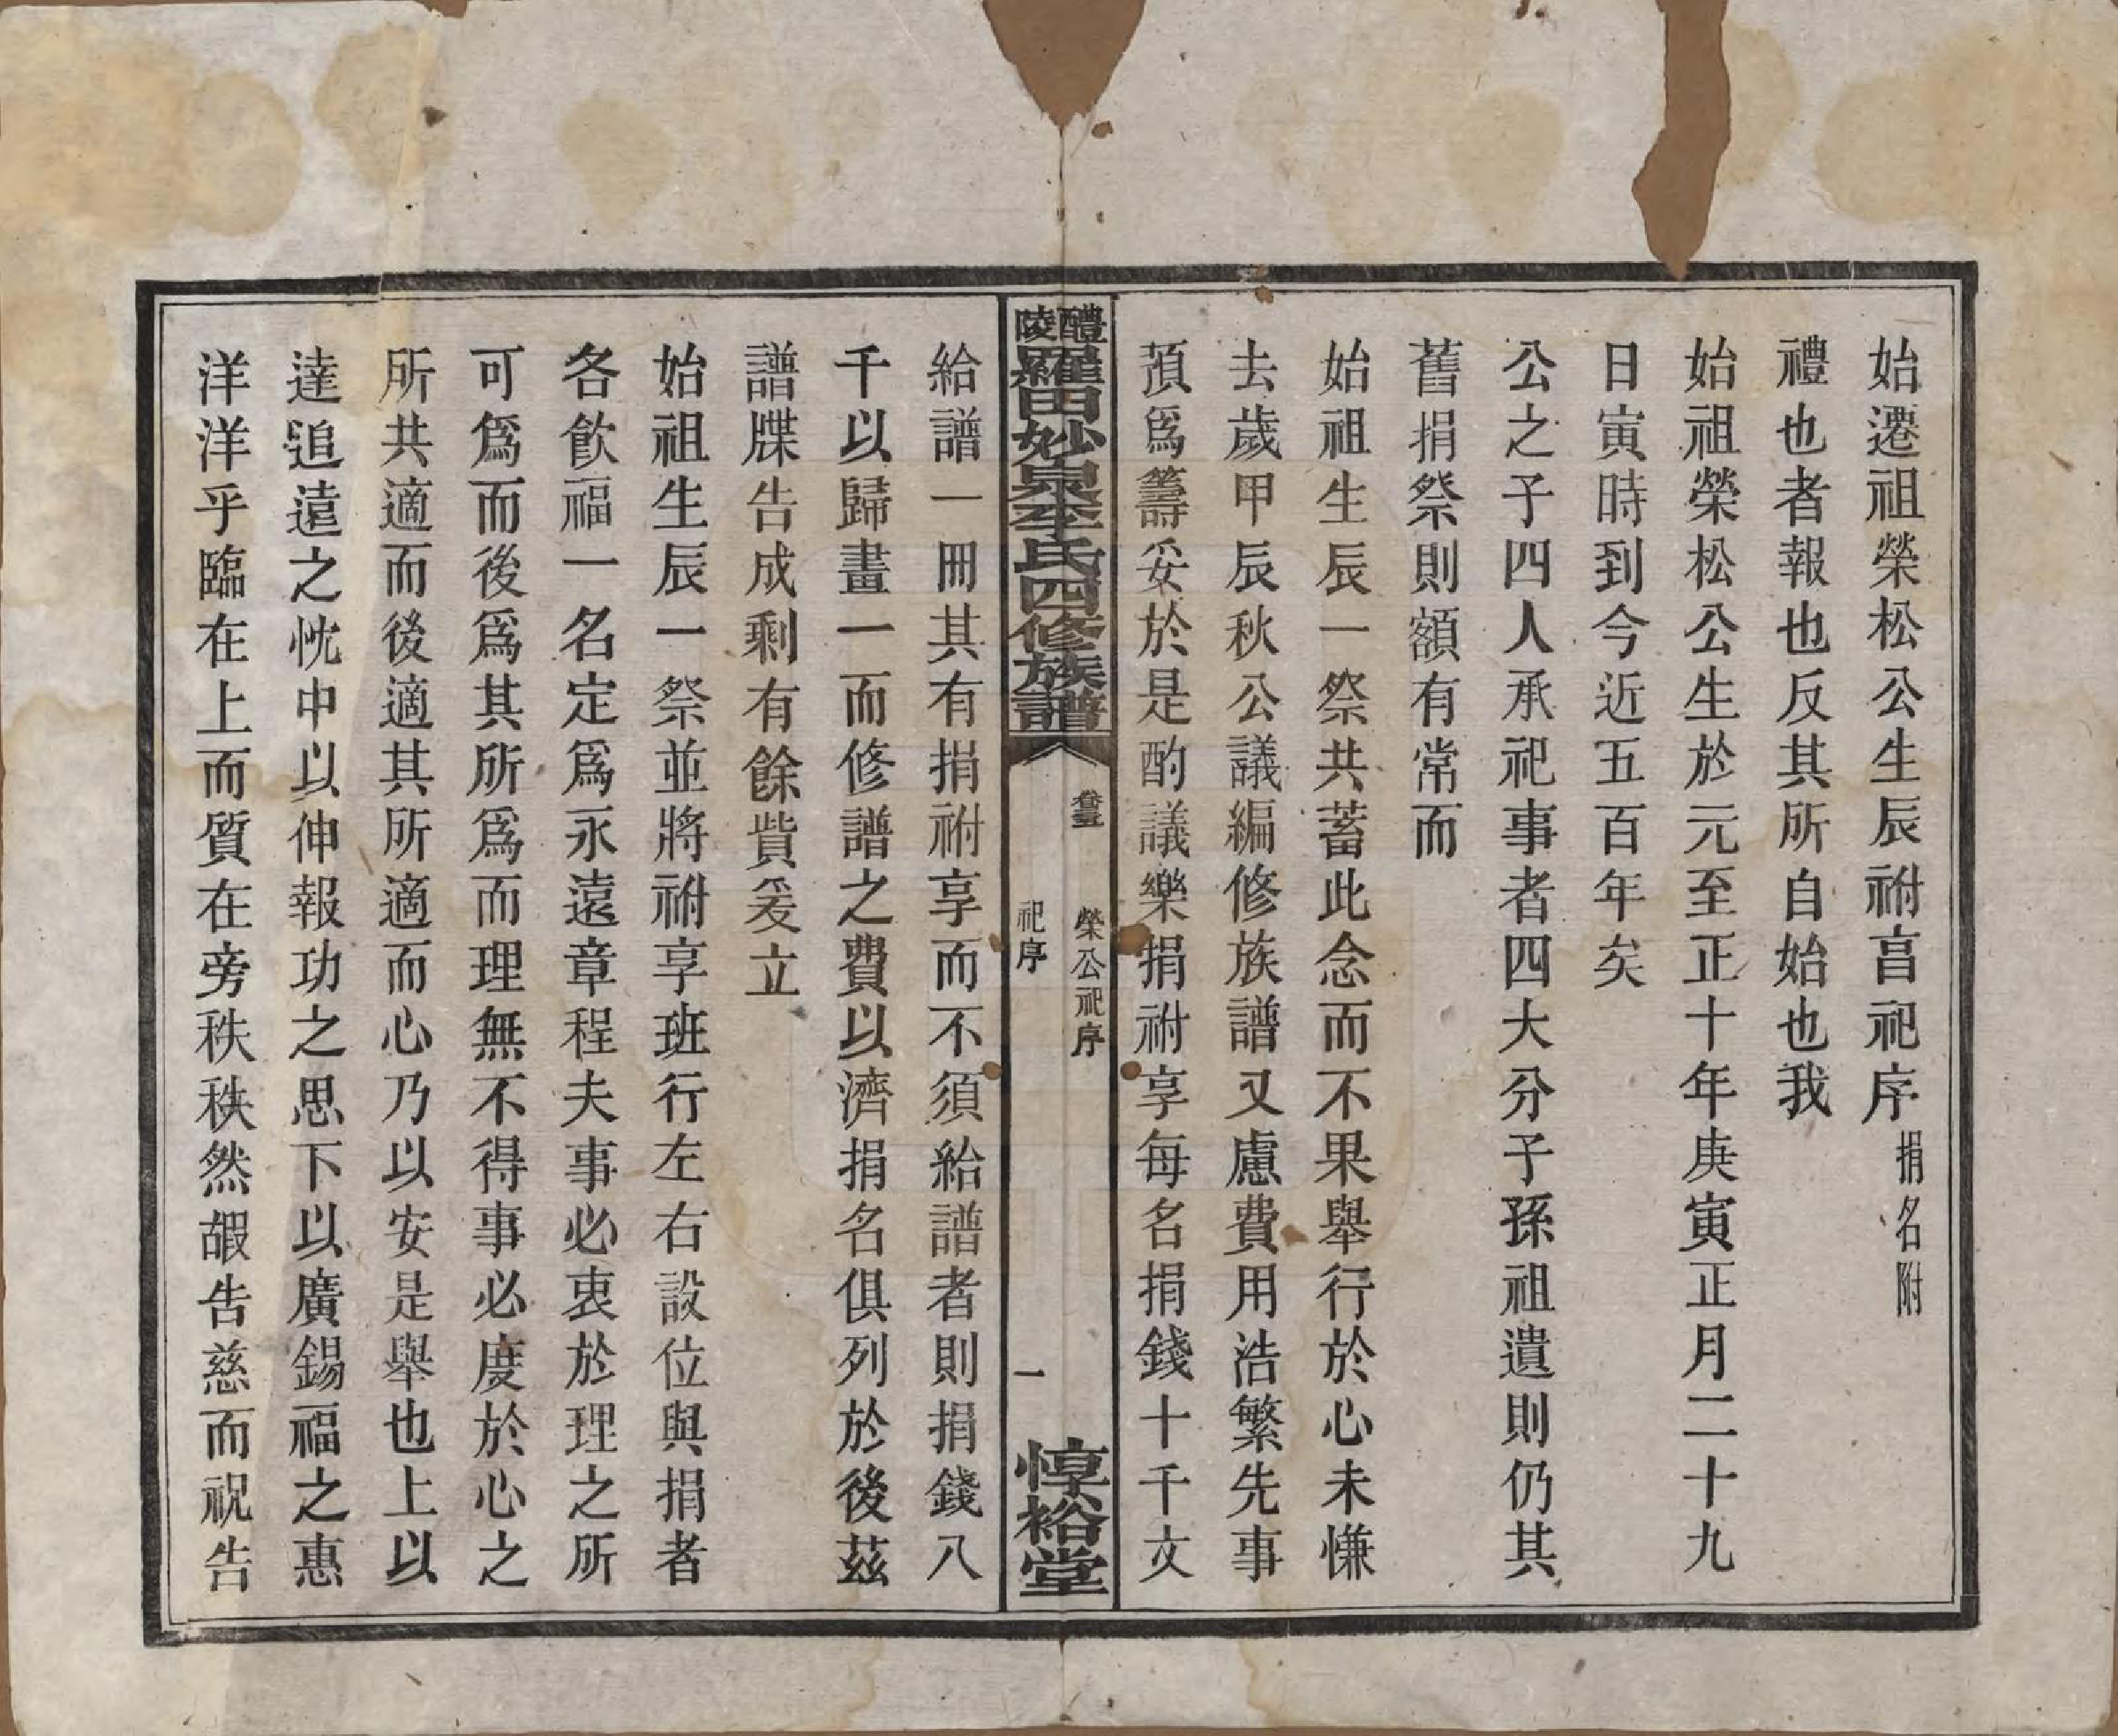 始遷祖榮松公生辰祔亯祀序捐名附
禮也者報也反其所自始也我
始祖榮松公生於元至正十年庚寅正月二十九
日寅時到今近五百年矣
公之子四人承祀事者四大分子孫祖遺則仍其
舊捐祭則額有常而
始祖生辰一祭共蓄此念而不果舉行於心未慊
去歲甲辰秋公議編修族譜又慮費用浩繁先事
預爲籌妥於是酌議樂捐祔享每名捐錢十千文
醴陵羅田妙泉李氏四修族譜
卷三 榮公祀序
祀序 一
惇裕堂
給譜一冊其有捐祔享而不須給譜者則捐錢八
千以歸畫一而修譜之費以濟捐名俱列於後茲
譜牒告成剩有餘貲爰立
始祖生辰一祭並將祔享班行左右設位與捐者
各飲福一名定爲永遠章程夫事必衷於理之所
可爲而後爲其所爲而理無不得事必度於心之
所共適而後適其所適而心乃以安是舉也上以
達追遠之忱中以伸報功之思下以廣錫福之惠
洋洋乎臨在上而質在旁秩秩然嘏告慈而祝告